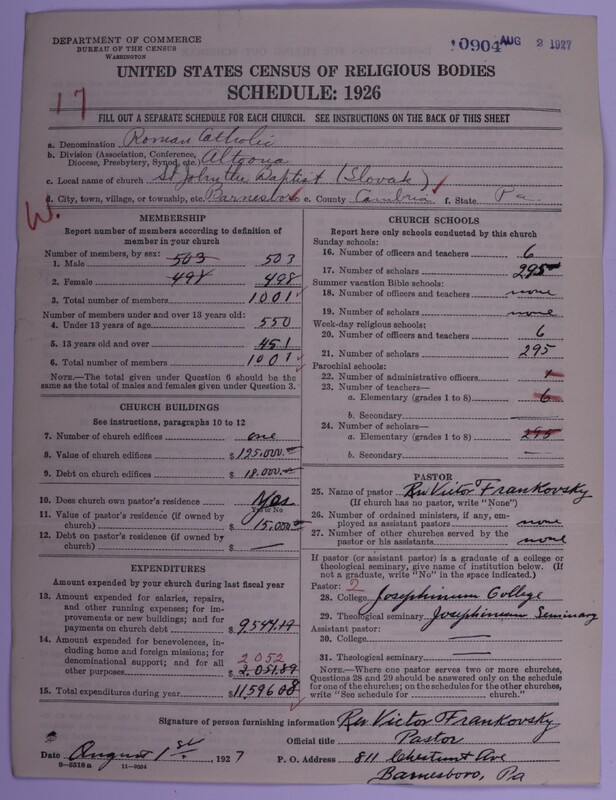 DEPARTMENT OF COMMERCE
BUREAU OF THE CENSUS
WASHINGTON
10904 AUG 2 1927
UNITED STATES CENSUS OF RELIGIOUS BODIES
SCHEDULE: 1926
17
FILL OUT A SEPARATE SCHEDULE FOR EACH CHURCH. SEE INSTRUCTIONS ON THE BACK OF THIS SHEET
a. Denomination Roman Catholic
b. Division (Association, Conference, Diocese, Presbytery, Synod, etc.) Altoona
c. Local name of church St John the Baptist (Slovak)
d. City, town, village, or township, etc. Barnesboro e. County Cambria f. State Pa.
W.
MEMBERSHIP
Report number of members according to definition of
member in your church
Number of members, by sex:
1. Male 503 503
2. Female 498 498
3. Total number of members 1001
Number of members under and over 13 years old:
4. Under 13 years of age 550
5. 13 years old and over 451
6. Total number of members 1001
NOTE.—The total given under Question 6 should be the
same as the total of males and females given under Question 3.
CHURCH BUILDINGS
See instructions, paragraphs 10 to 12
7. Number of church edifices one
8. Value of church edifices $ 125,000.00
9. Debt on church edifices $ 18,000.00
10. Does church own pastor's residence Yes
Yes or No
11. Value of pastor's residence (if owned by
church) $ 15,000.00
12. Debt on pastor's residence (if owned by
church) $ —
EXPENDITURES
Amount expended by your church during last fiscal year
13. Amount expended for salaries, repairs,
and other running expenses; for im-
provements or new buildings; and for
payments on church debt $ 9,544.19
14. Amount expended for benevolences, in-
cluding home and foreign missions; for
denominational support; and for all
other purposes $ 2,051.89
2052
15. Total expenditures during year $ 11,596.08
CHURCH SCHOOLS
Report here only schools conducted by this church
Sunday schools:
16. Number of officers and teachers 6
17. Number of scholars 295
Summer vacation Bible schools:
18. Number of officers and teachers none
19. Number of scholars none
Week-day religious schools:
20. Number of officers and teachers 6
21. Number of scholars 295
Parochial schools:
22. Number of administrative officers
23. Number of teachers—
a. Elementary (grades 1 to 8) 6
b. Secondary —
24. Number of scholars—
a. Elementary (grades 1 to 8) 295
b. Secondary —
PASTOR
25. Name of pastor Rev Victor Frankovsky
(If church has no pastor, write "None")
26. Number of ordained ministers, if any, em-
ployed as assistant pastors none
27. Number of other churches served by the
pastor or his assistants none
If pastor (or assistant pastor) is a graduate of a college or
theological seminary, give name of institution below. (If
not a graduate, write "No" in the space indicated.)
Pastor: 2
28. College Josephinum College
29. Theological seminary Josephinum Seminary
Assistant pastor:
30. College —
31. Theological seminary —
NOTE.—Where one pastor serves two or more churches,
Questions 28 and 29 should be answered only on the schedule
for one of the churches; on the schedules for the other churches,
write "See schedule for church."
Signature of person furnishing information Rev Victor Frankovsky
Official title Pastor
Date August 1st, 1927 P. O. Address 811 Chestnut Ave
8—5518 a 11—9004
Barnesboro, Pa